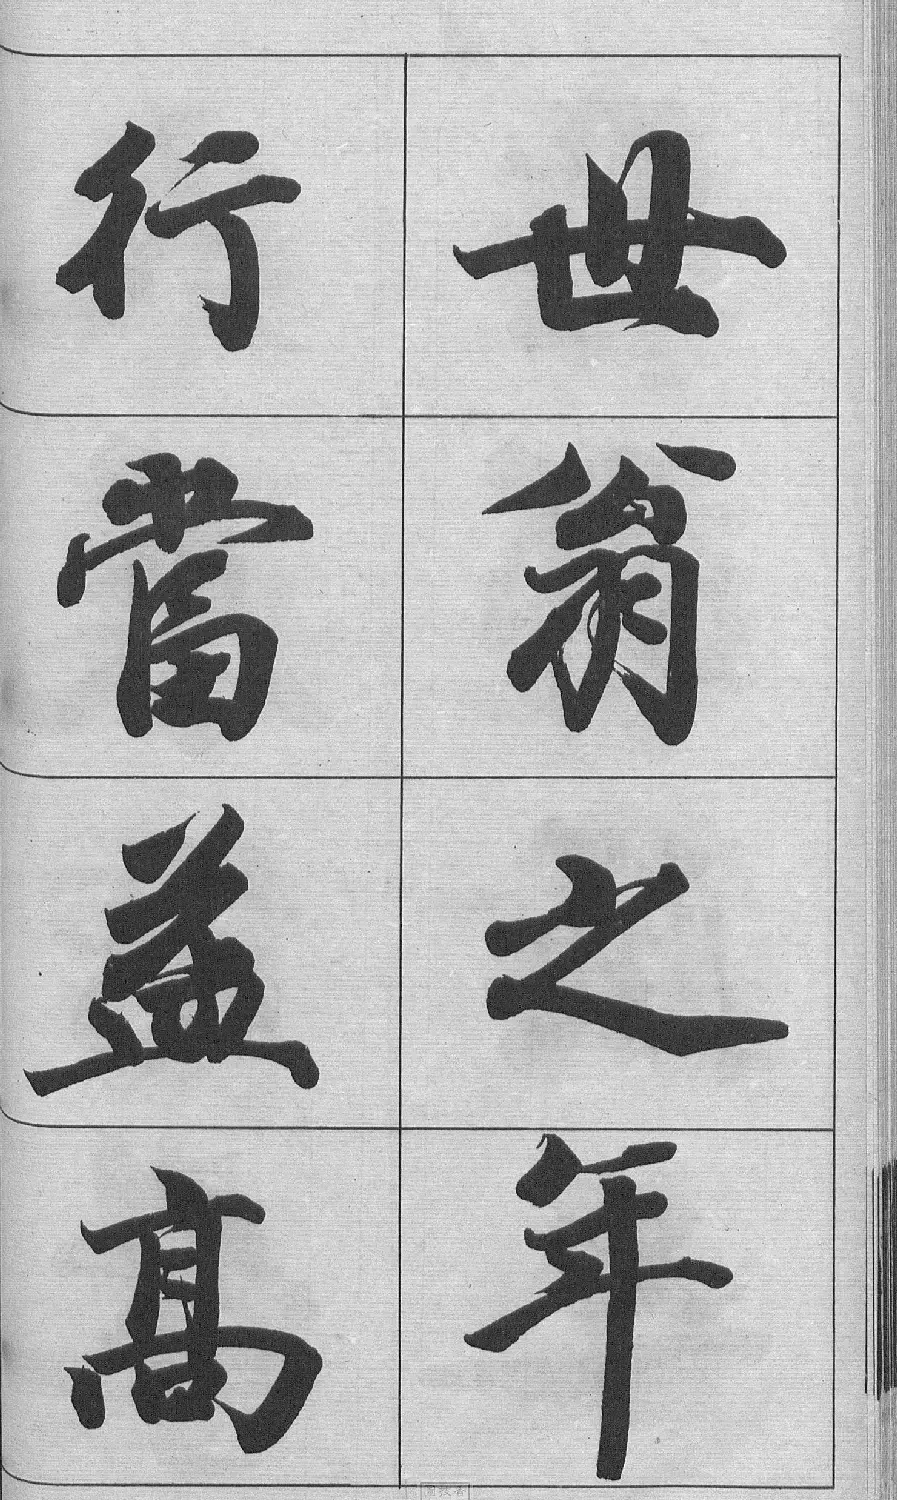 世翁之年
行當益高